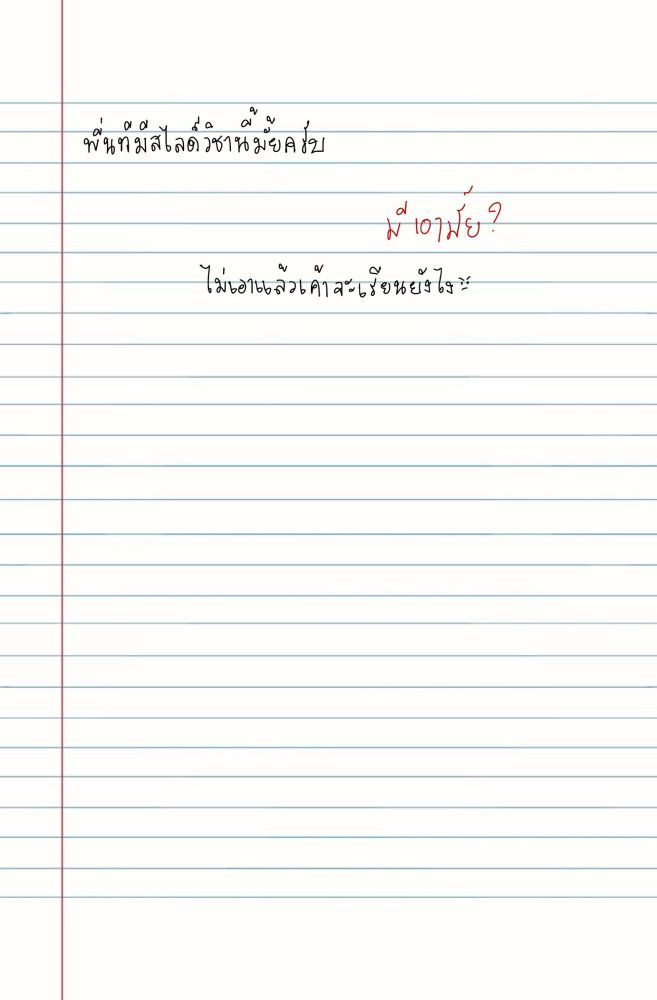 พี่นทีมีสไลด์วิชานี้มั้ยครับ
มี เอามั้ย?
ไม่เอาแล้วเค้าจะเรียนยังไงะ